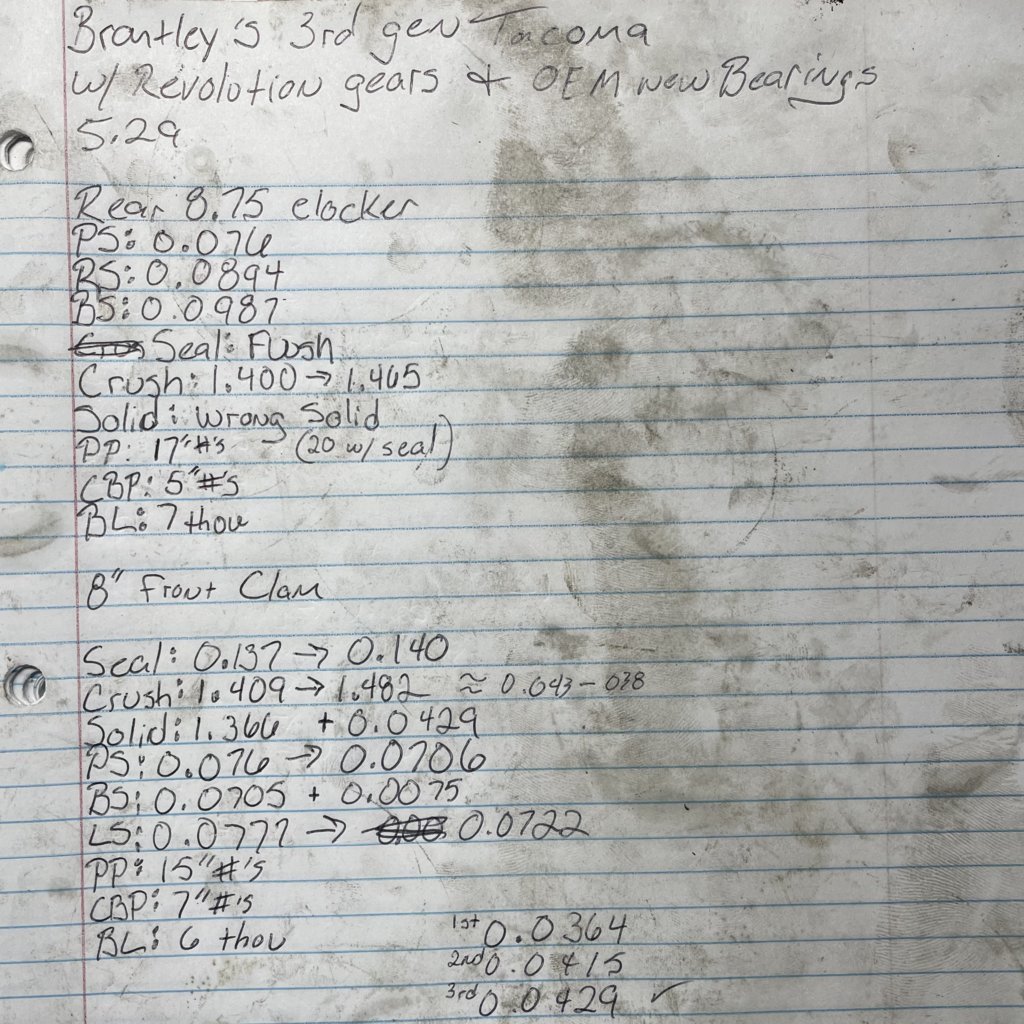 Brantley's 3rd gen Tacoma
w/ Revolution gears & OEM new Bearings
5.29
Rear 8.75 elocker
PS: 0.076
RS: 0.0894
BS: 0.0987
Seal: Flush
Crush: 1.400 → 1.465
Solid: wrong Solid
PP: 17"#'s (20 w/ seal)
CBP: 5"#'s
BL: 7 thou
8" Front Clam
Seal: 0.137 → 0.140
Crush: 1.409 → 1.482 ≈ 0.043 - 038
Solid: 1.366 + 0.0429
PS: 0.076 → 0.0706
BS: 0.0705 + 0.0075
LS: 0.0777 → 0.0722
PP: 15"#'s
CBP: 7"#'s
BL: 6 thou
1st 0.0364
2nd 0.0415
3rd 0.0429 ✓